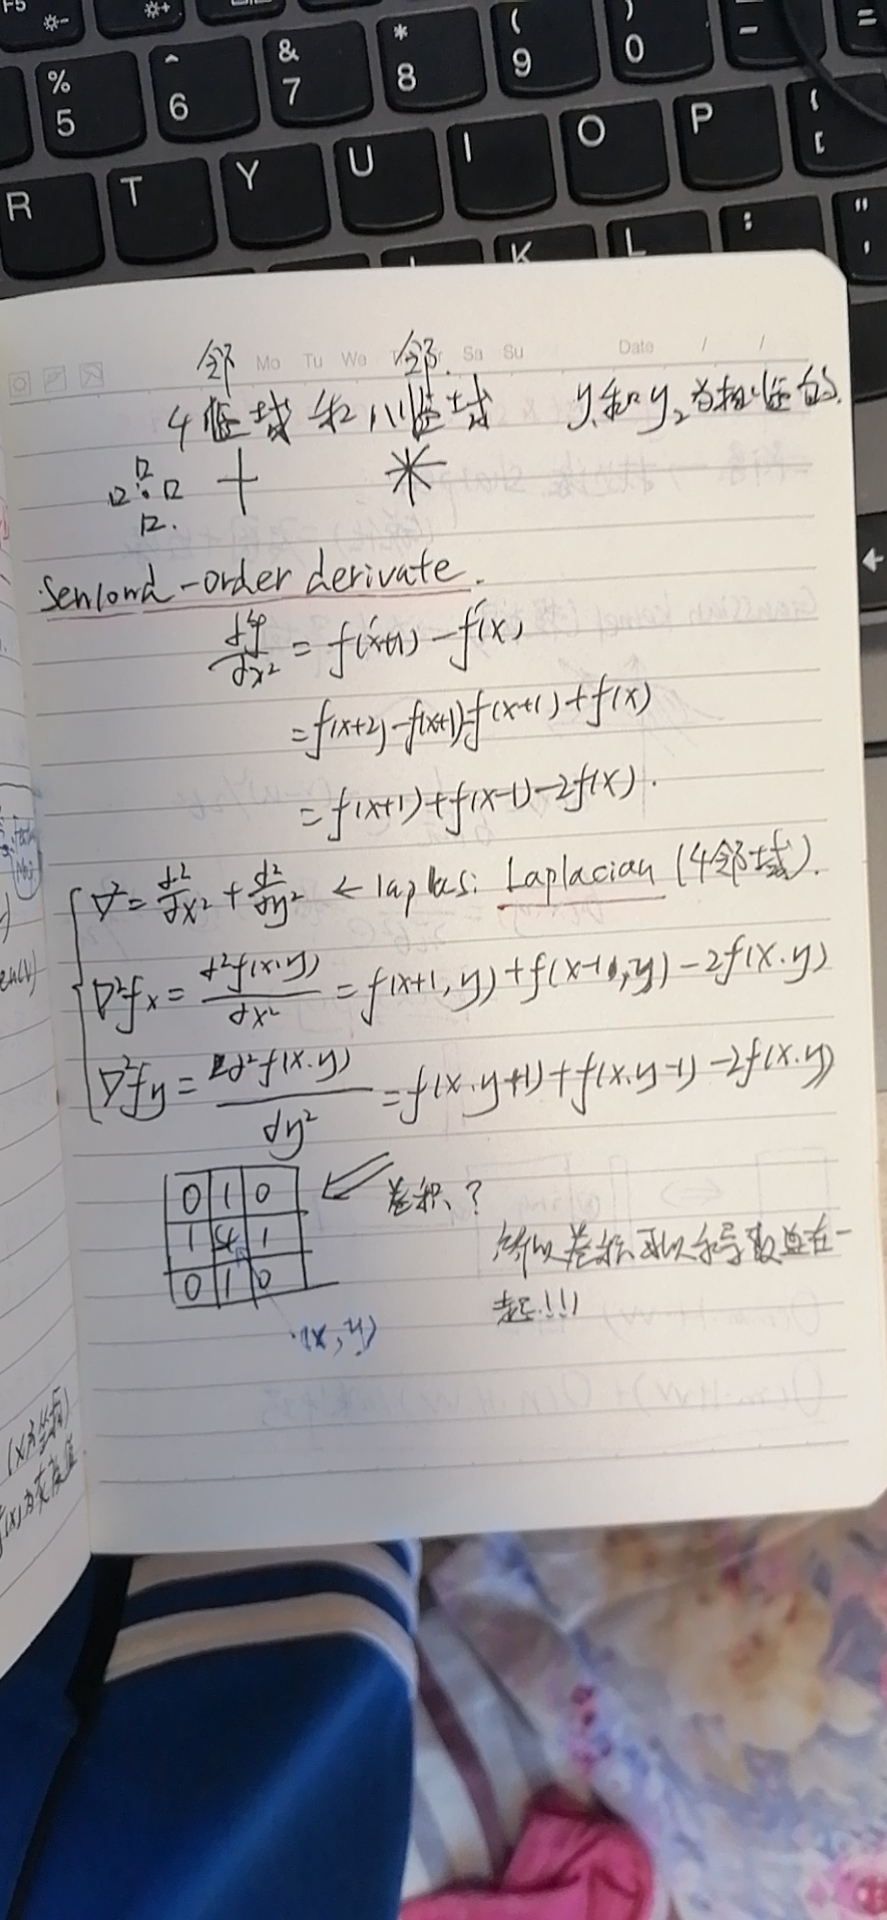 F5
% & * ( )
5 6 7 8 9 0 - =
R T Y U I O P [
K L : "
Mo Tu We Sa Su Date / /
邻 邻.
4临域和八临域 y₁和y₂为相临的.
Senlond-order derivate.
d²f/dx² = f'(x+1) - f'(x)
= f(x+2) - f(x+1) - f(x+1) + f(x)
= f(x+1) + f(x-1) - 2f(x).
∇² = d²/dx² + d²/dy² ← laplas: Laplacian (4邻域).
∇²fx = d²f(x.y)/dx² = f(x+1,y) + f(x-1,y) - 2f(x.y)
∇²fy = d²f(x.y)/dy² = f(x.y+1) + f(x.y-1) - 2f(x.y)
0 1 0
1 -4 1
0 1 0
卷积、?
所以卷积可以和导数连在一
起!!!
(x为坐标)
f(x)为灰度值